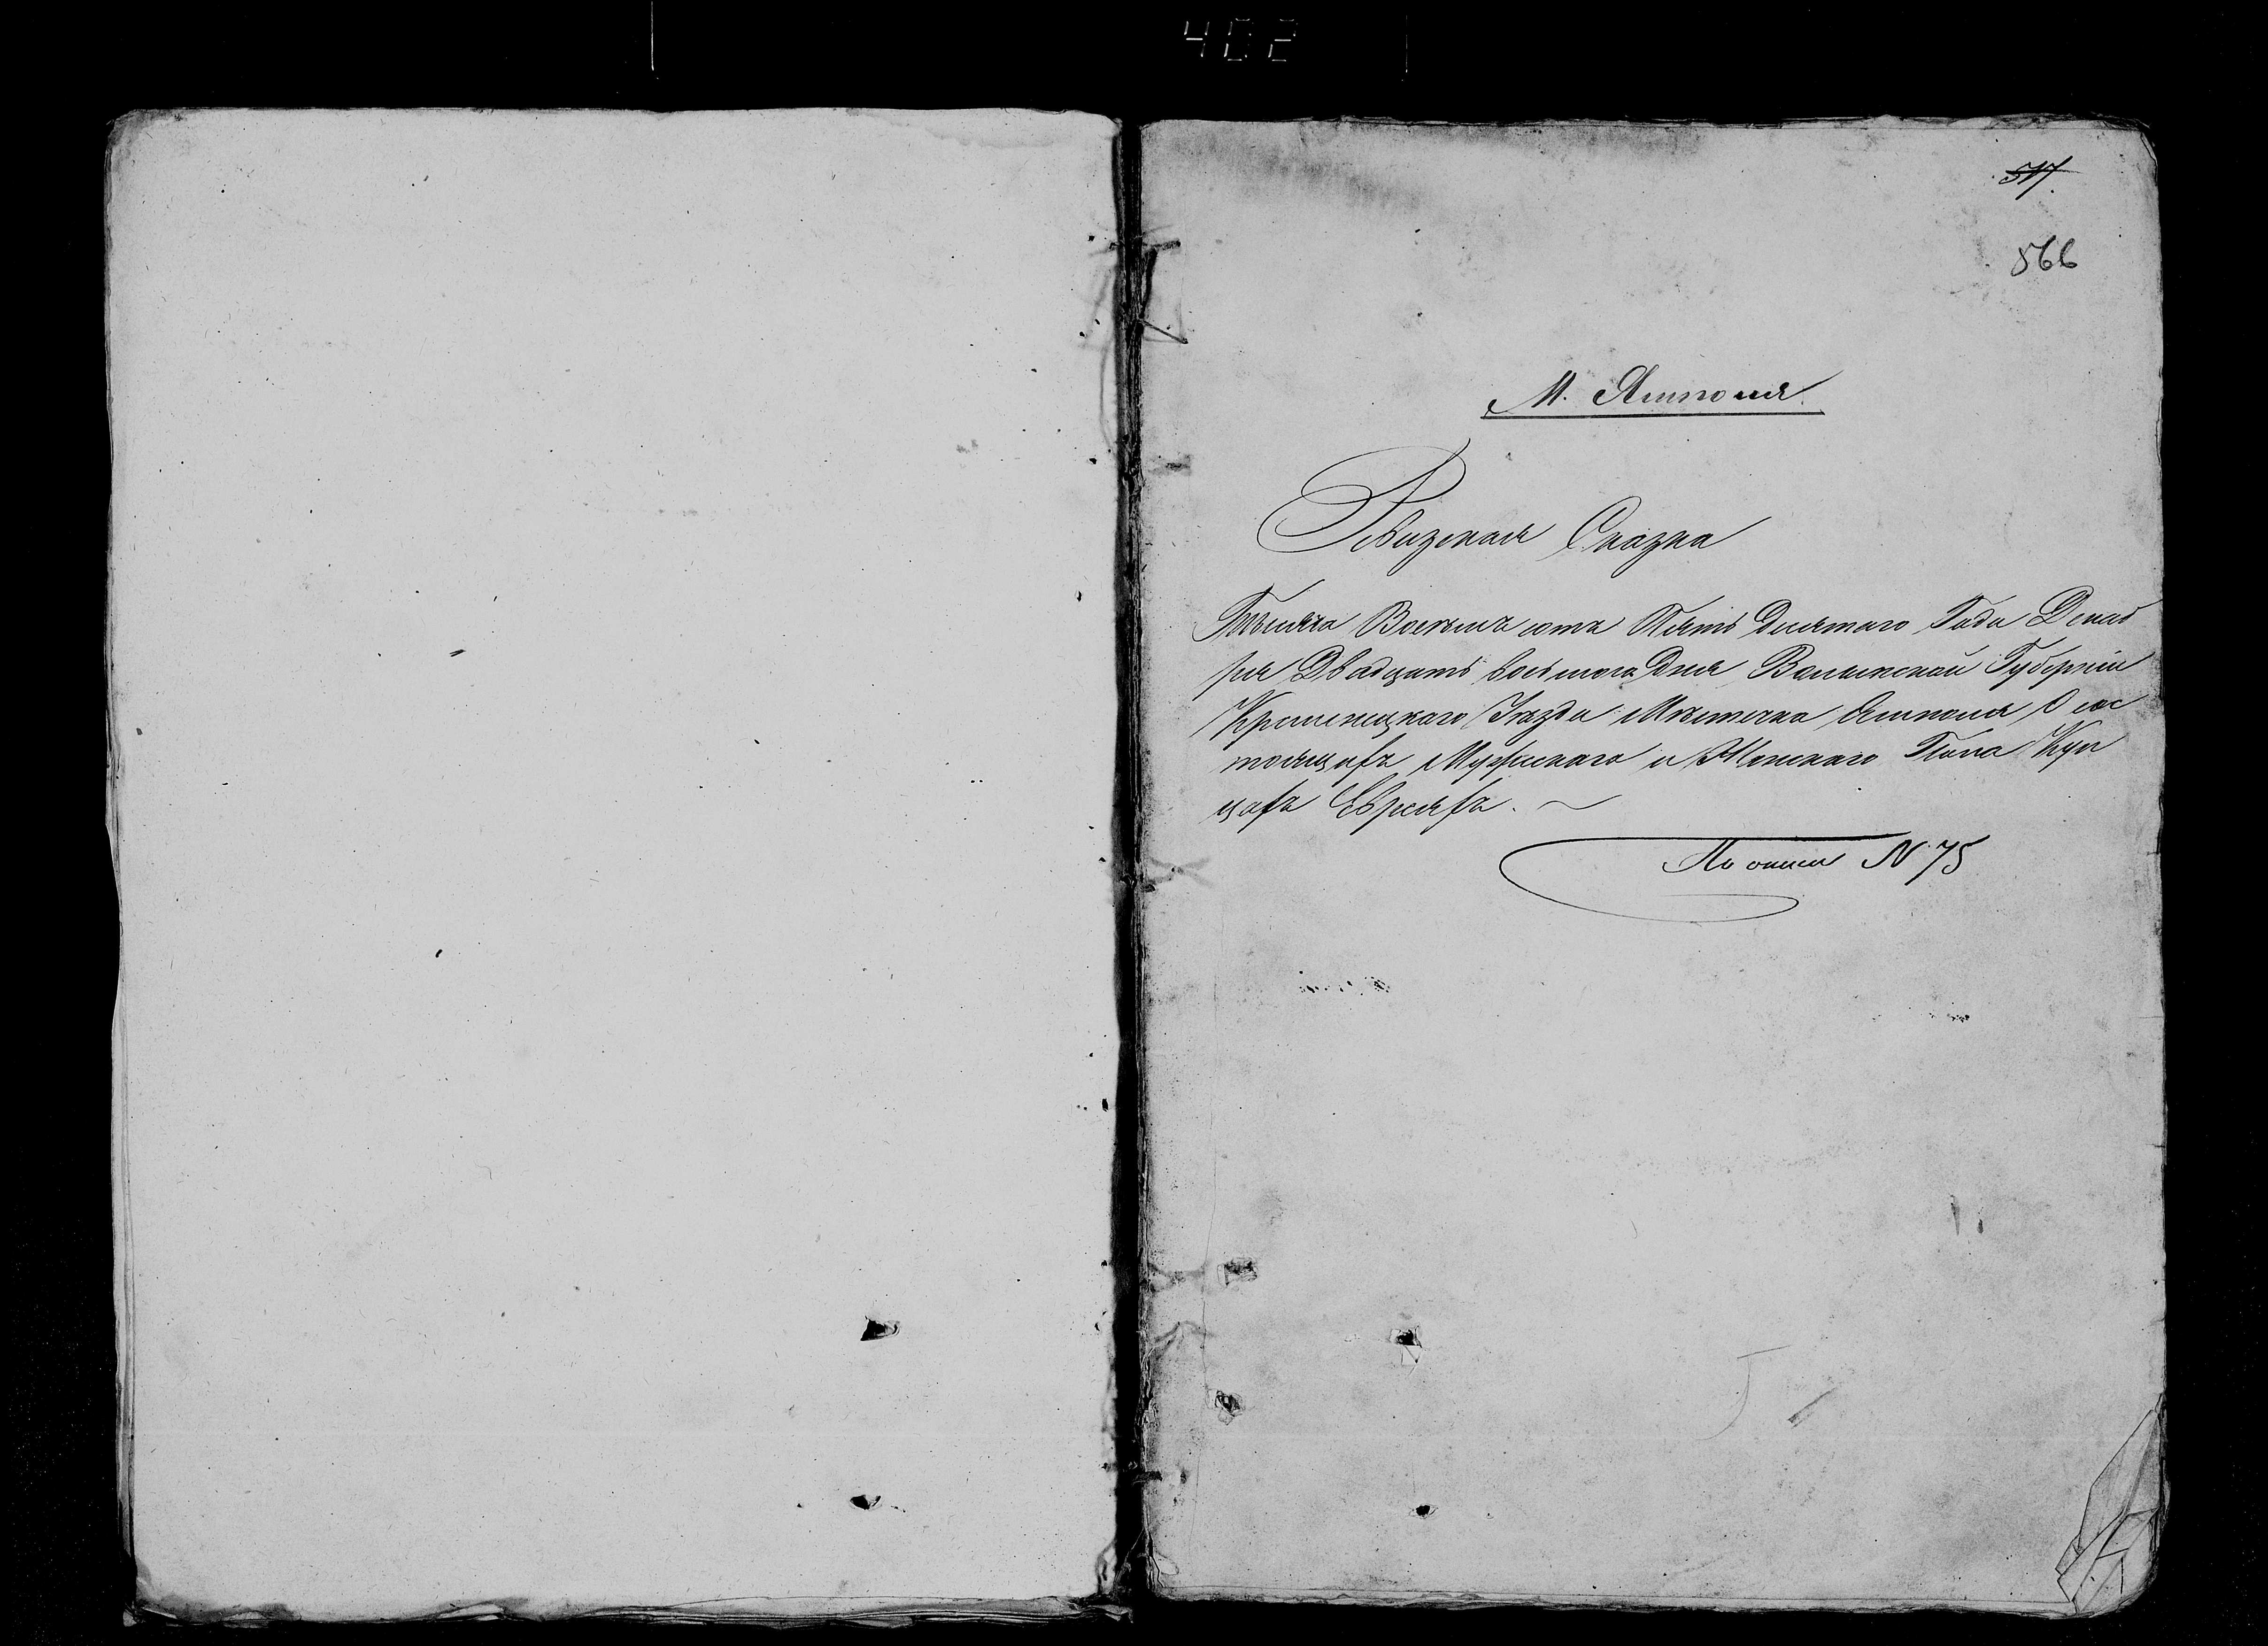 402
517
566
М. Ямполя
Ревизская Сказка
Тысяча Восемъ сотъ Пять десятаго Года Декаб
ря Двадцать восьмого Дня Волынской Губерніи
Кременецкаго Уезда Мѣстечка Ямполя О сос
тоящихъ Мужескаго и Женскаго Пола Куп
цахъ Евреяхъ.
По описи N 75